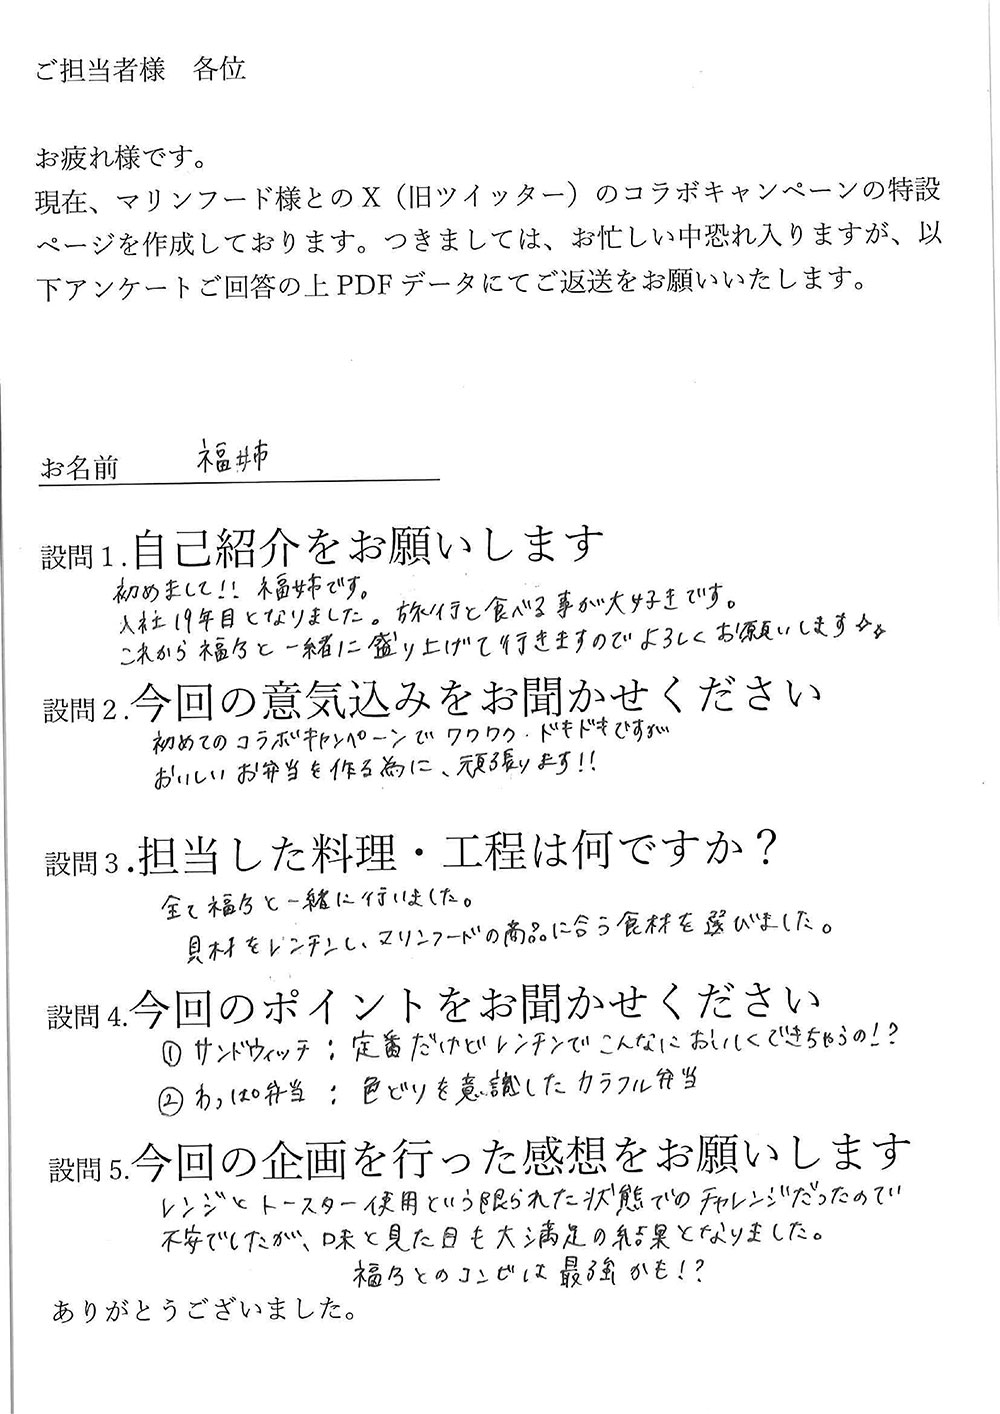 ご担当者様　各位
お疲れ様です。
現在、マリンフード様とのX（旧ツイッター）のコラボキャンペーンの特設
ページを作成しております。つきましては、お忙しい中恐れ入りますが、以
下アンケートご回答の上PDFデータにてご返送をお願いいたします。
お名前　福姉
設問1.自己紹介をお願いします
初めまして!! 福姉です。
入社19年目となりました。旅行と食べる事が大好きです。
これから福乃と一緒に盛り上げて行きますのでよろしくお願いします☆☆
設問2.今回の意気込みをお聞かせください
初めてのコラボキャンペーンでワクワク・ドキドキですが
おいしいお弁当を作る為に、頑張ります!!
設問3.担当した料理・工程は何ですか？
全て福乃と一緒に行いました。
具材をレンチンし、マリンフードの商品に合う食材を選びました。
設問4.今回のポイントをお聞かせください
① サンドウィッチ：定番だけどレンチンでこんなにおいしくできちゃうの!?
② わっぱ弁当：色どりを意識したカラフル弁当
設問5.今回の企画を行った感想をお願いします
レンジとトースター使用という限られた状態でのチャレンジだったので
不安でしたが、味と見た目も大満足の結果となりました。
福乃とのコンビは最強かも!?
ありがとうございました。